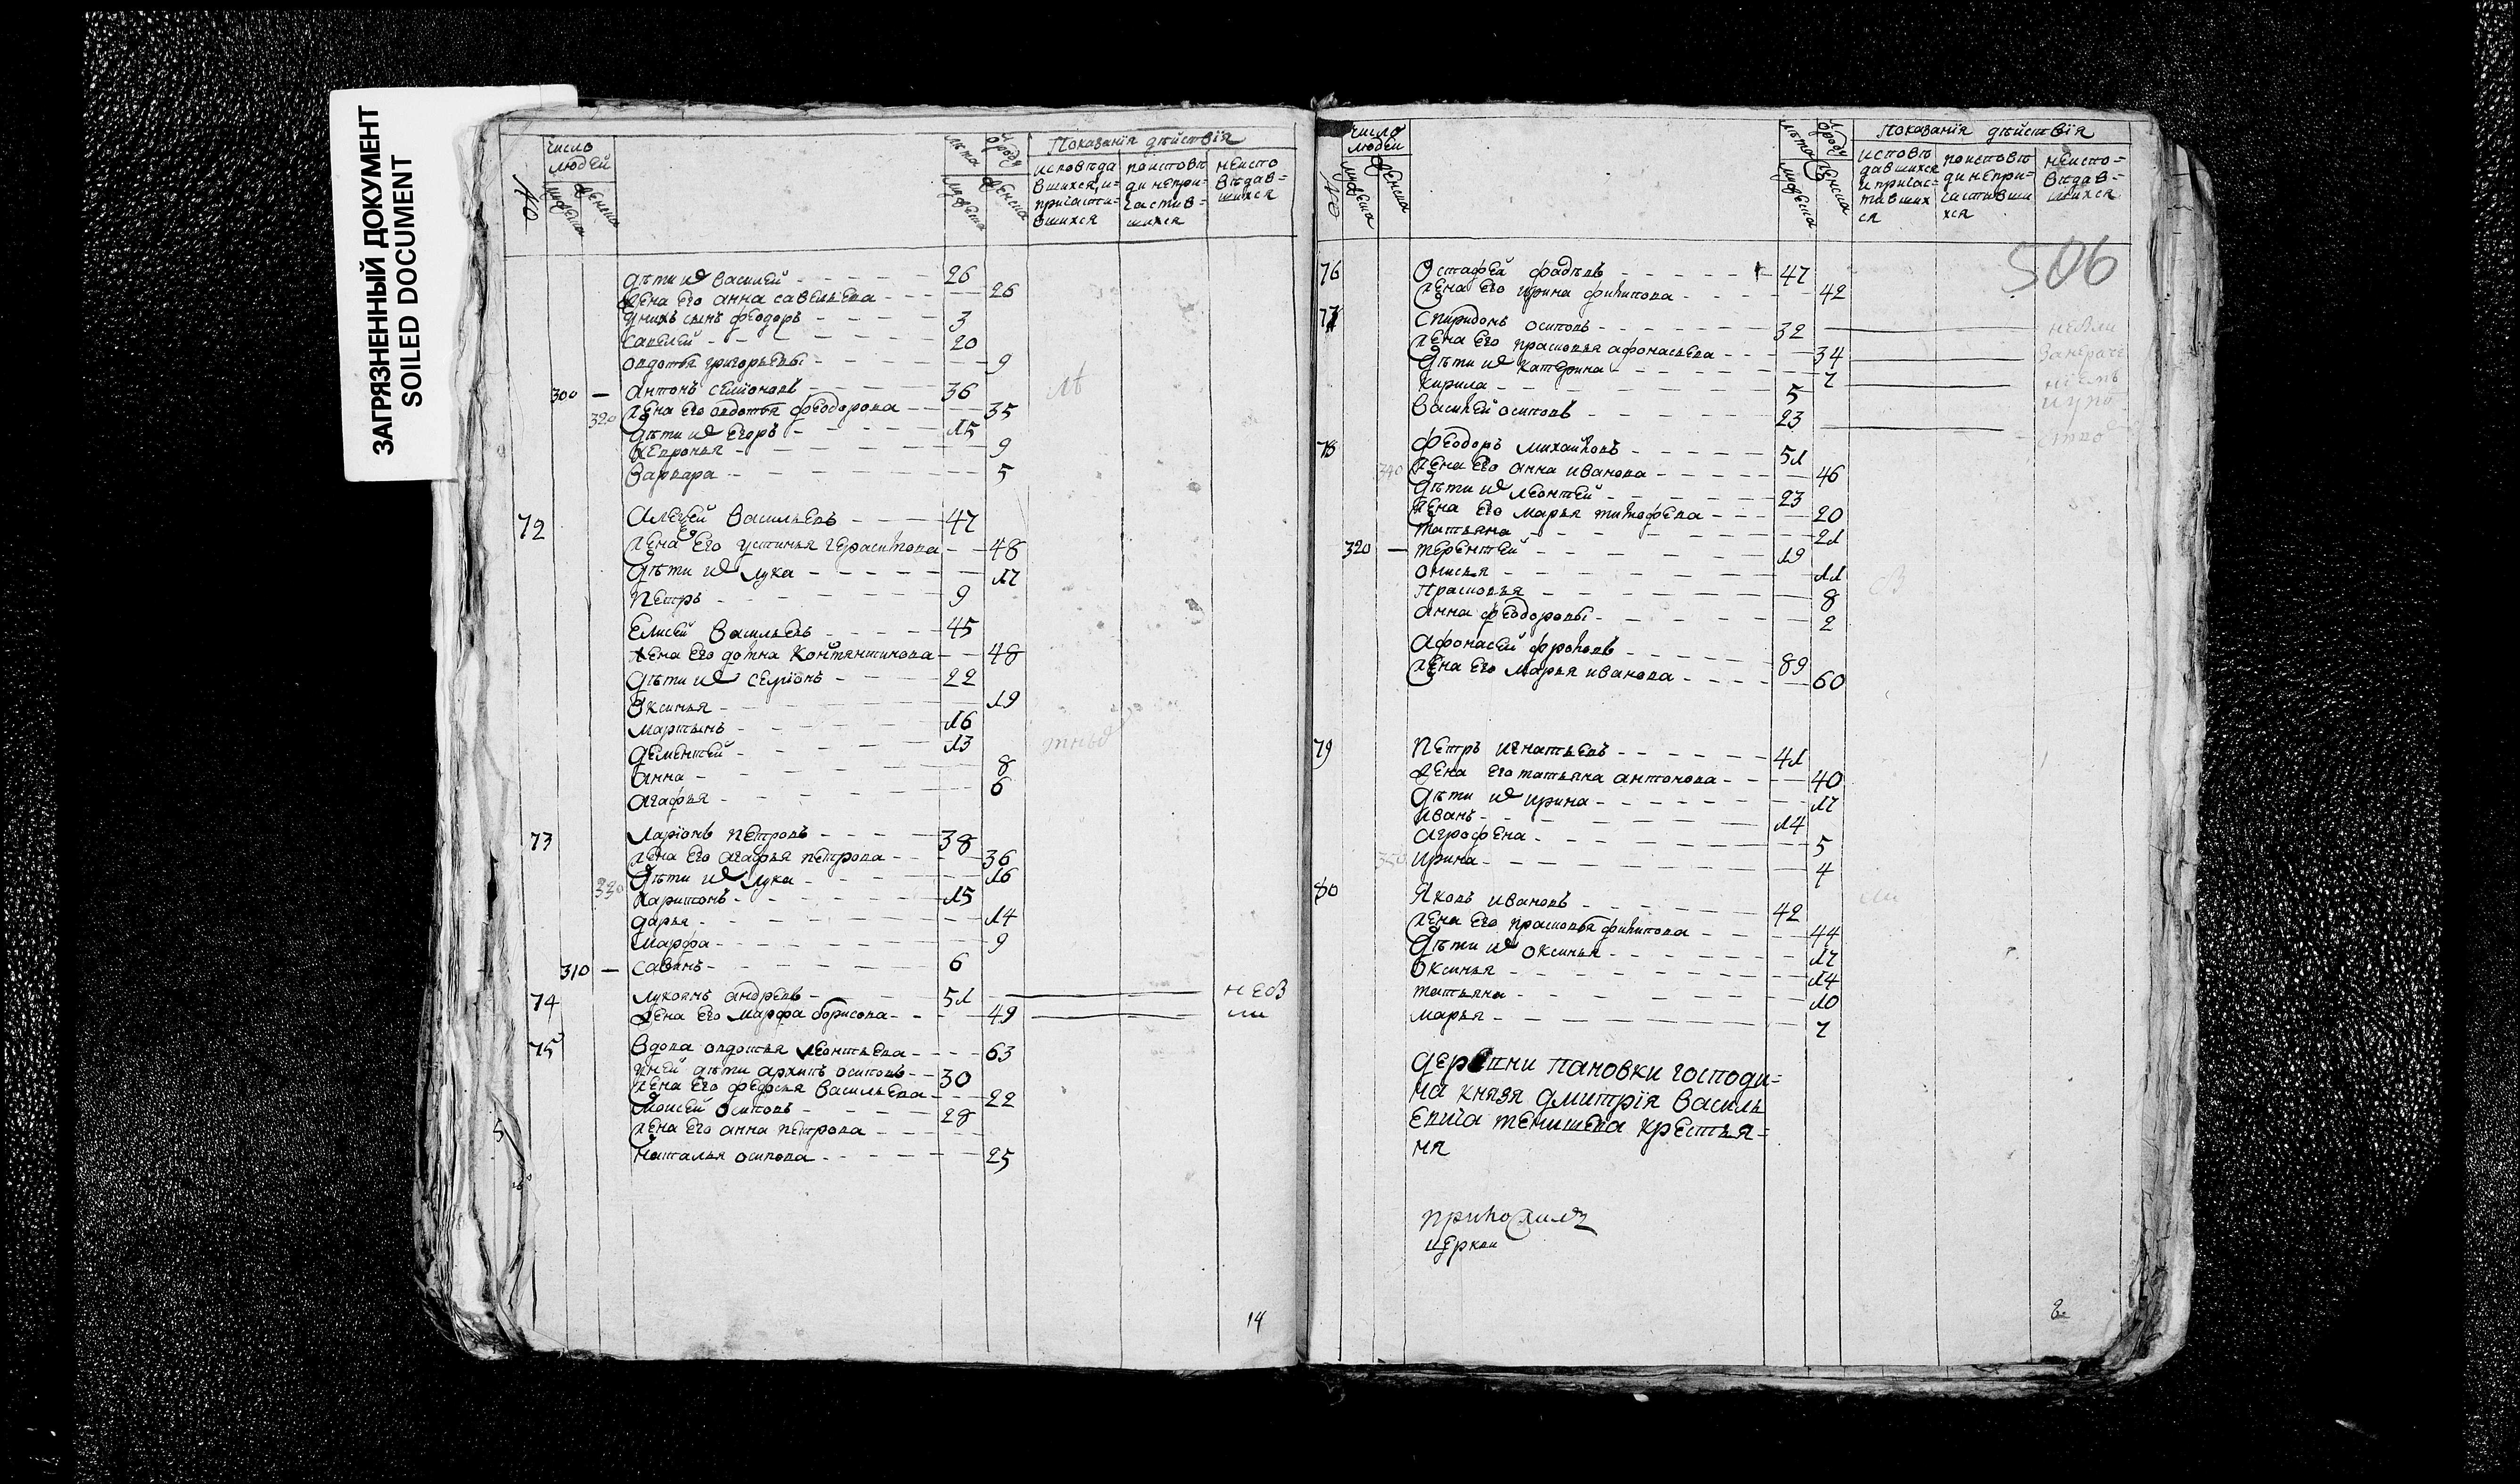 ЗАГРЯЗНЕННЫЙ ДОКУМЕНТ
SOILED DOCUMENT
№ число людей мужеска женска лѣта мужеска ѿ роду женска Показанїя дѣйствїя
исповѣдавшихся и причастившихся
по исповѣди непричастившихся
неисповѣдавшихся
дѣти их Василей 26
жена его анна савельева 26
у нихъ сынъ феодоръ 3
савелей 20
овдотья григорьевы 9
300 — антонъ семіоновъ 36
320 жена его овдотья феодорова 35
дѣти их Егоръ 15
хевронья 9
Варвара 5
72 Алеѯей Васильевъ 47
жена Его устинья герасимова 48
дѣти их лука 17
Петръ 9
Елисей Васильевъ 45
жена Его домна Контянтинова 48
дѣти их семіонъ 22
Оксинья 19
мартынъ 16
дементей 13
анна 8
агафья 6
73 Ларіонъ петровъ 38
жена Его агафья петрова 36
330 дѣти их лука 16
харитонъ 15
дарья 14
марфа 9
310 — савинъ 6
74 лукоянъ андревъ 51 небы
жена Его марфа борисова 49 ли
75 Вдова овдотья леонтьева 63
у ней дѣти архипъ осиповъ 30
жена Его федосья Васильева 22
моисей Осиповъ 28
жена Его анна петрова
наталья осипова 25
14
№ число людей мужеска женска лѣта мужеска ѿ роду женска Показанїя дѣйствїя
исповѣдавшихся и причаставшихся
по исповѣди непричистившихся
неисповѣдавшихся
506
76 Остафей фадѣевъ 47
жена Его Ирина филипова 42
77 Спиридонъ осиповъ 32 небыли
жена Его прасковья афонасьева 34
дѣти их катерина 7
кирила 5
Василей осиповъ 23
78 феодоръ михаиловъ 51
340 жена Его анна иванова 46
дѣти их леонтей 23
жена Его марья тимофева 20
татьяна 21
320 — терентей 19
онисья 11
Прасковья 8
анна феодоровы 2
Афонасей фроловъ 89
жена Его марья иванова 60
79 Петръ игнатьевъ 41
жена Его татьяна антонова 40
дѣти их ирина 17
иванъ 14
агрофена 5
350 ирина 4
80 Яковъ ивановъ 42
жена Его прасковья филипова 44
дѣти их оксинья 17
Оксинья 14
татьяна 10
марья 7
деревни пановки господи=
на князя дмитрїя василь
евича тенишева крестья=
ня
церкви